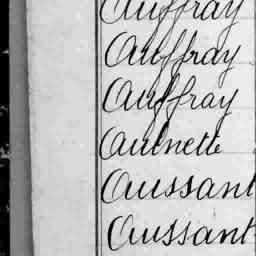 Auffray
Auffray
Auffray
Aulnette
Aussant
Aussant